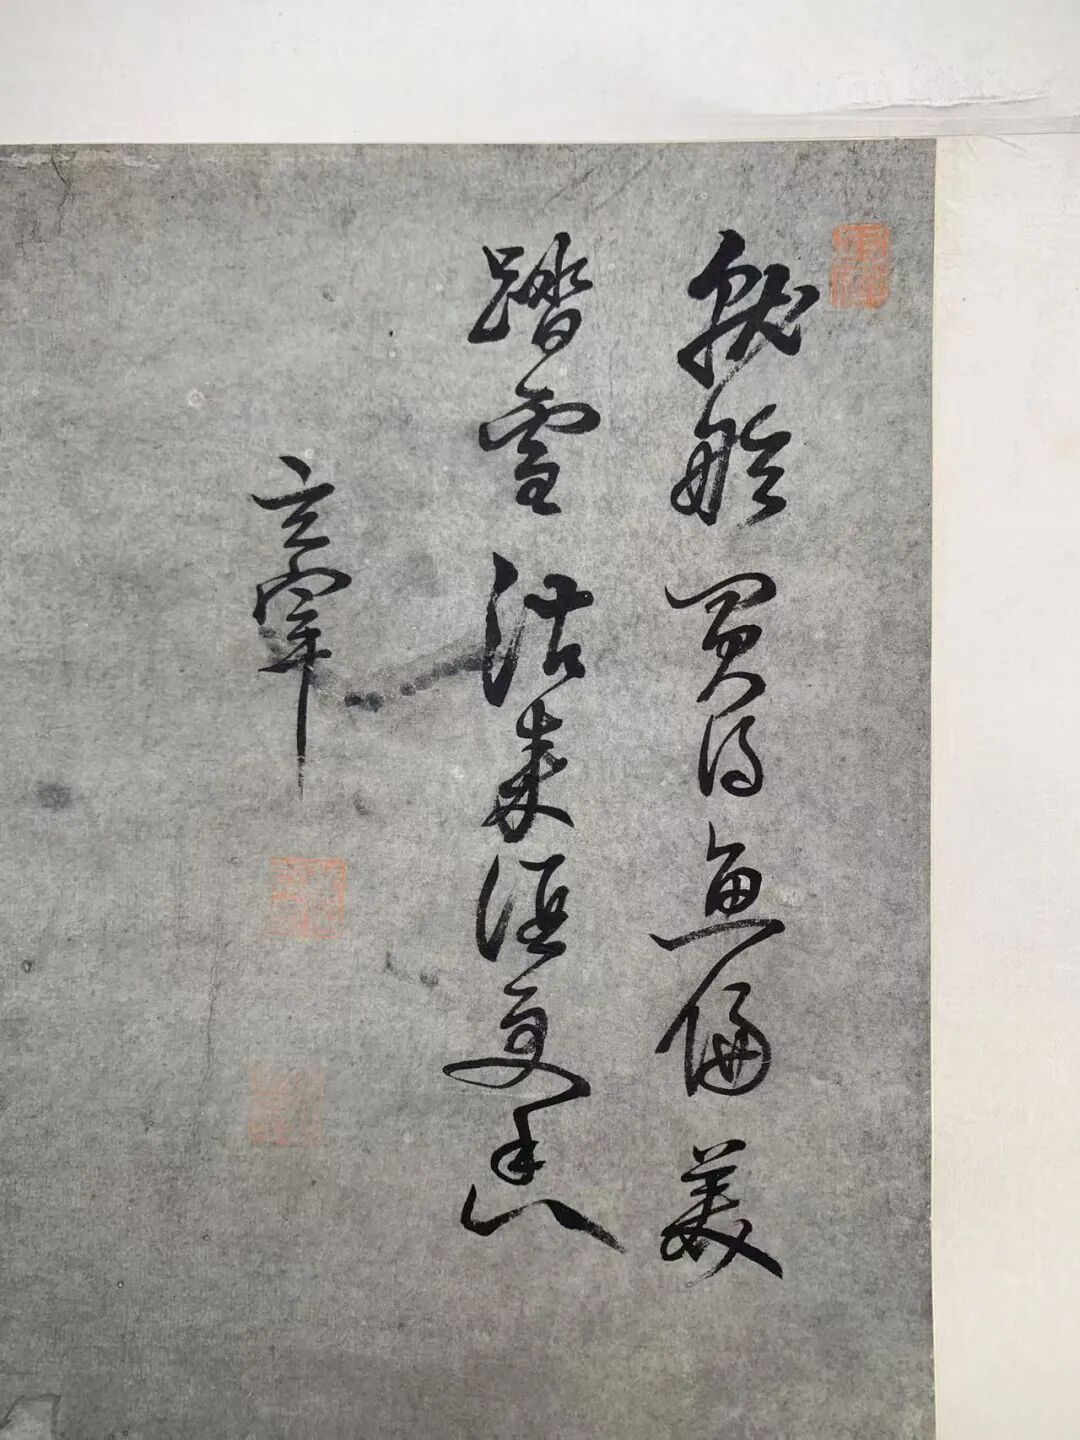 就船買得魚偏美
踏雪沽來酒更香
玄宰